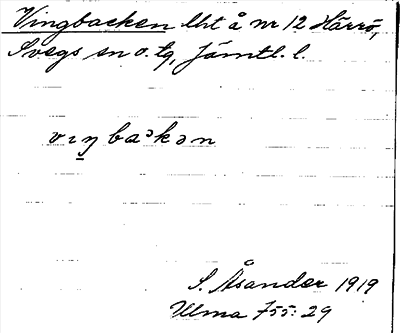 Vingbacken lht å nr 12 Härrö,
Svegs sn o. tg, Jämtl. l.
vıŋbaᵊkən
S. Åsander 1919
Ulma 755:29